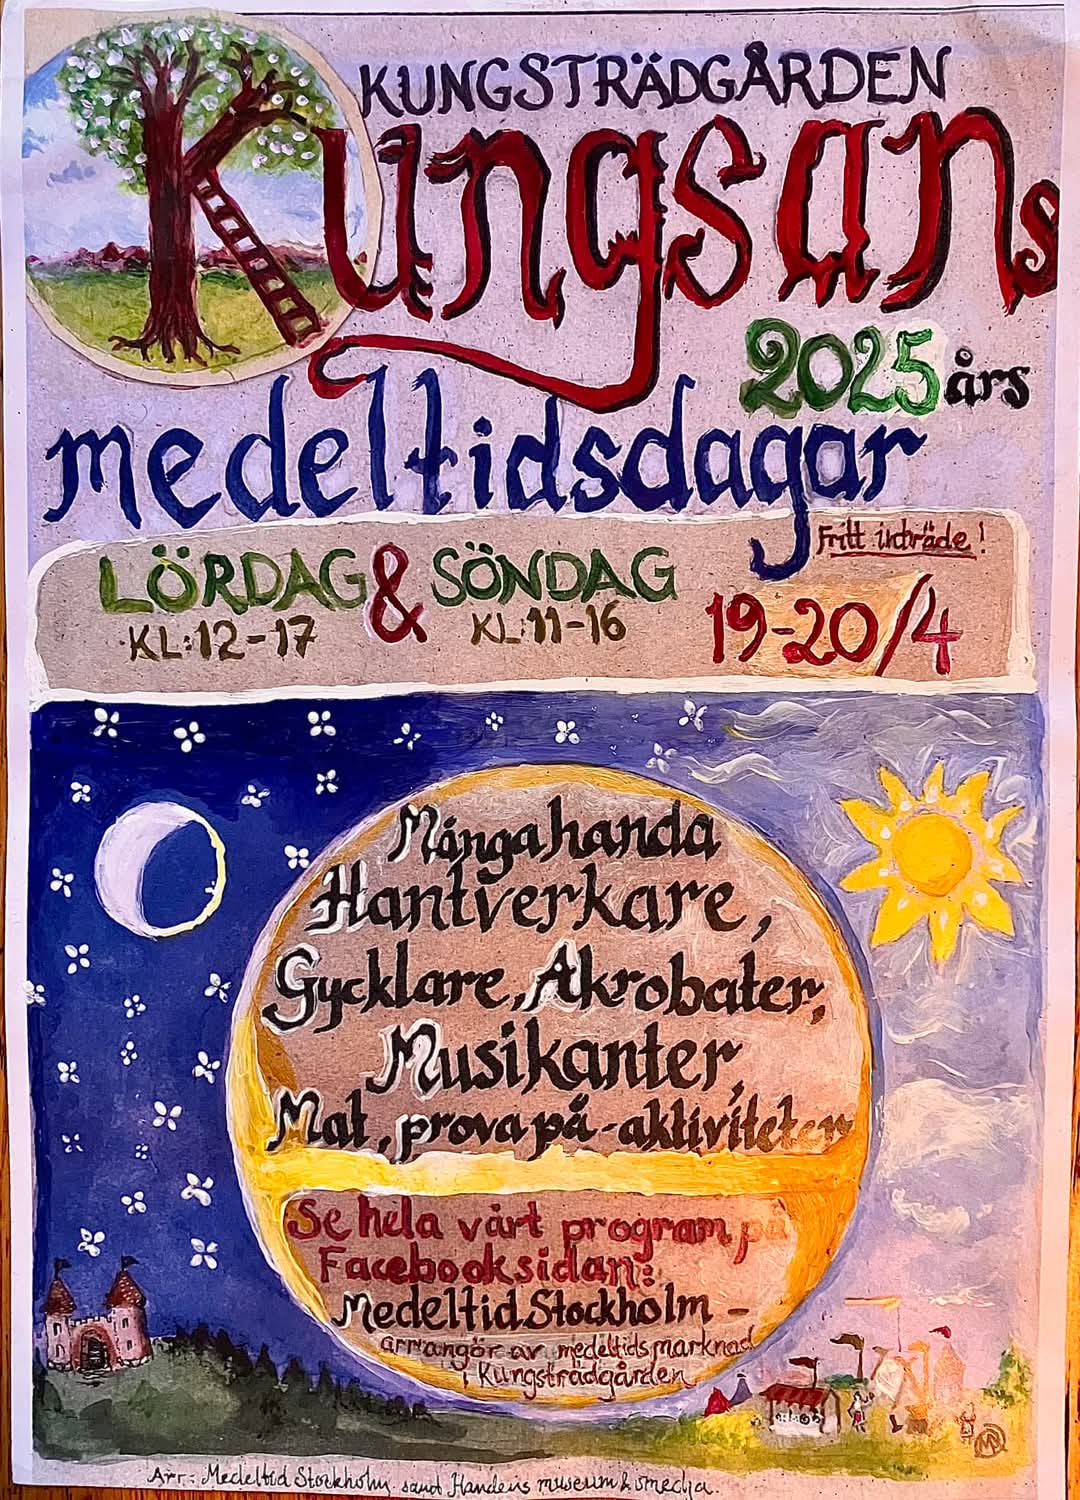 KUNGSTRÄDGÅRDEN
Kungsans
2025 års
medeltidsdagar
Fritt inträde!
LÖRDAG & SÖNDAG
KL: 12-17 KL: 11-16 19-20/4
Mångahanda
Hantverkare,
Gycklare, Akrobater,
Musikanter,
Mat, prova på-aktiviteter
Se hela vårt program på
Facebooksidan:
Medeltid Stockholm -
arrangör av medeltidsmarknad
i Kungsträdgården
Arr: Medeltid Stockholm samt Handens museum & smedja.